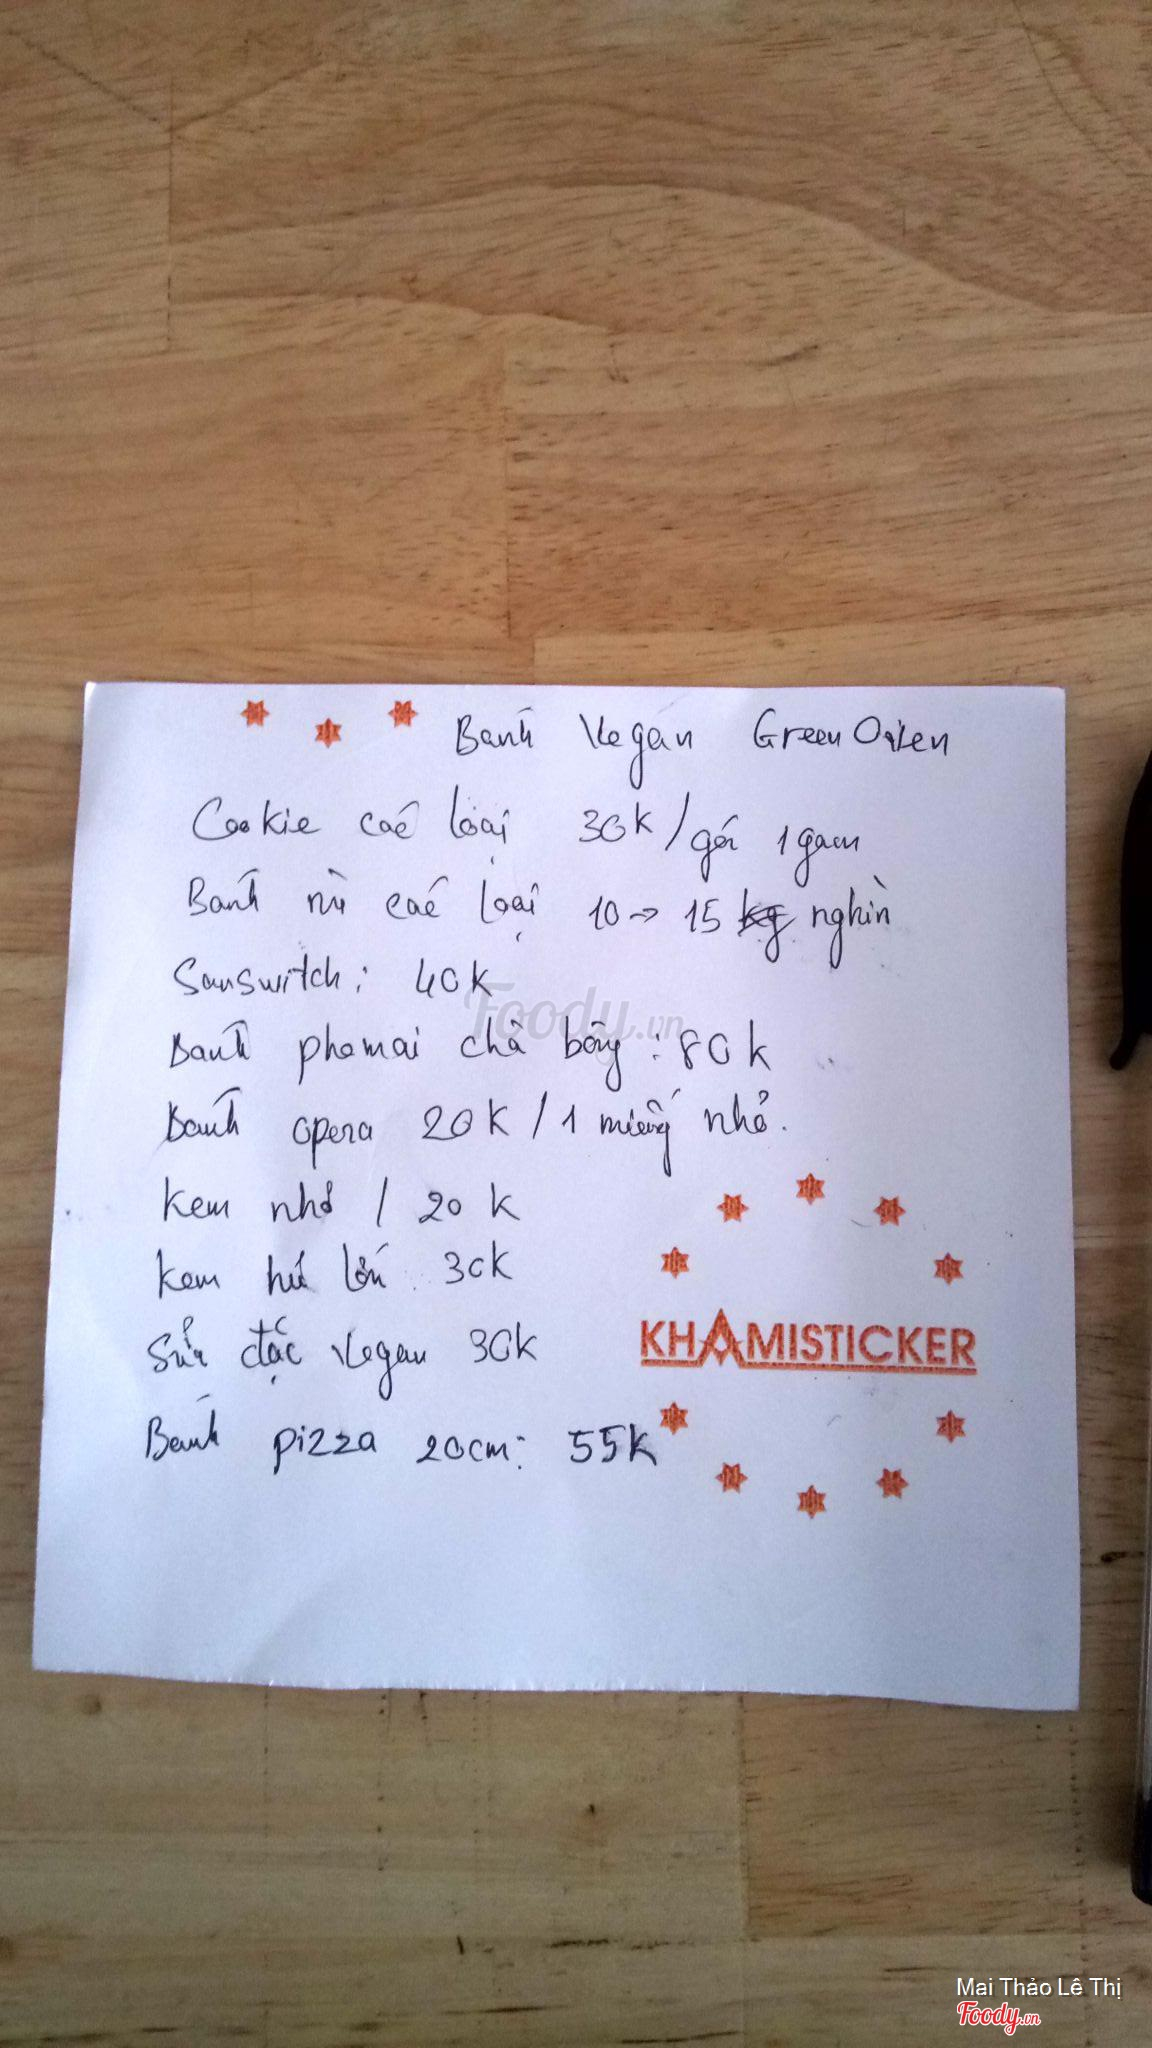 Bánh Vegan Green Oven
Cookie các loại 30k/gói 1 gam
Bánh mì các loại 10 → 15 nghìn
Sanswitch: 40k
Foody.vn
Bánh phomai chà bông: 80k
Bánh opera 20k / 1 miếng nhỏ.
Kem nhỏ / 20k
Kem hủ lớn 30k
Sữa đặc Vegan 30k
KHAMISTICKER
Bánh pizza 20cm: 55k
Mai Thảo Lê Thị
Foody.vn